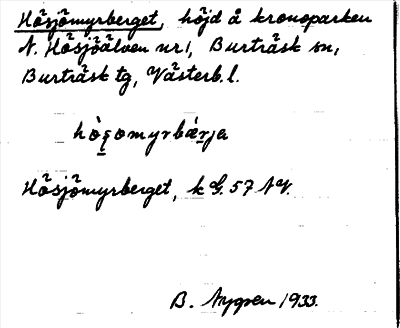 Hösjömyrberget, höjd å kronoparken
N. Hösjöälven nr 1, Burträsk sn,
Burträsk tg, Västerb. l.
hò̱ṣomyrbæ̀rja
Hösjömyrberget, k G. 57 NV.
B. Nygren 1933.